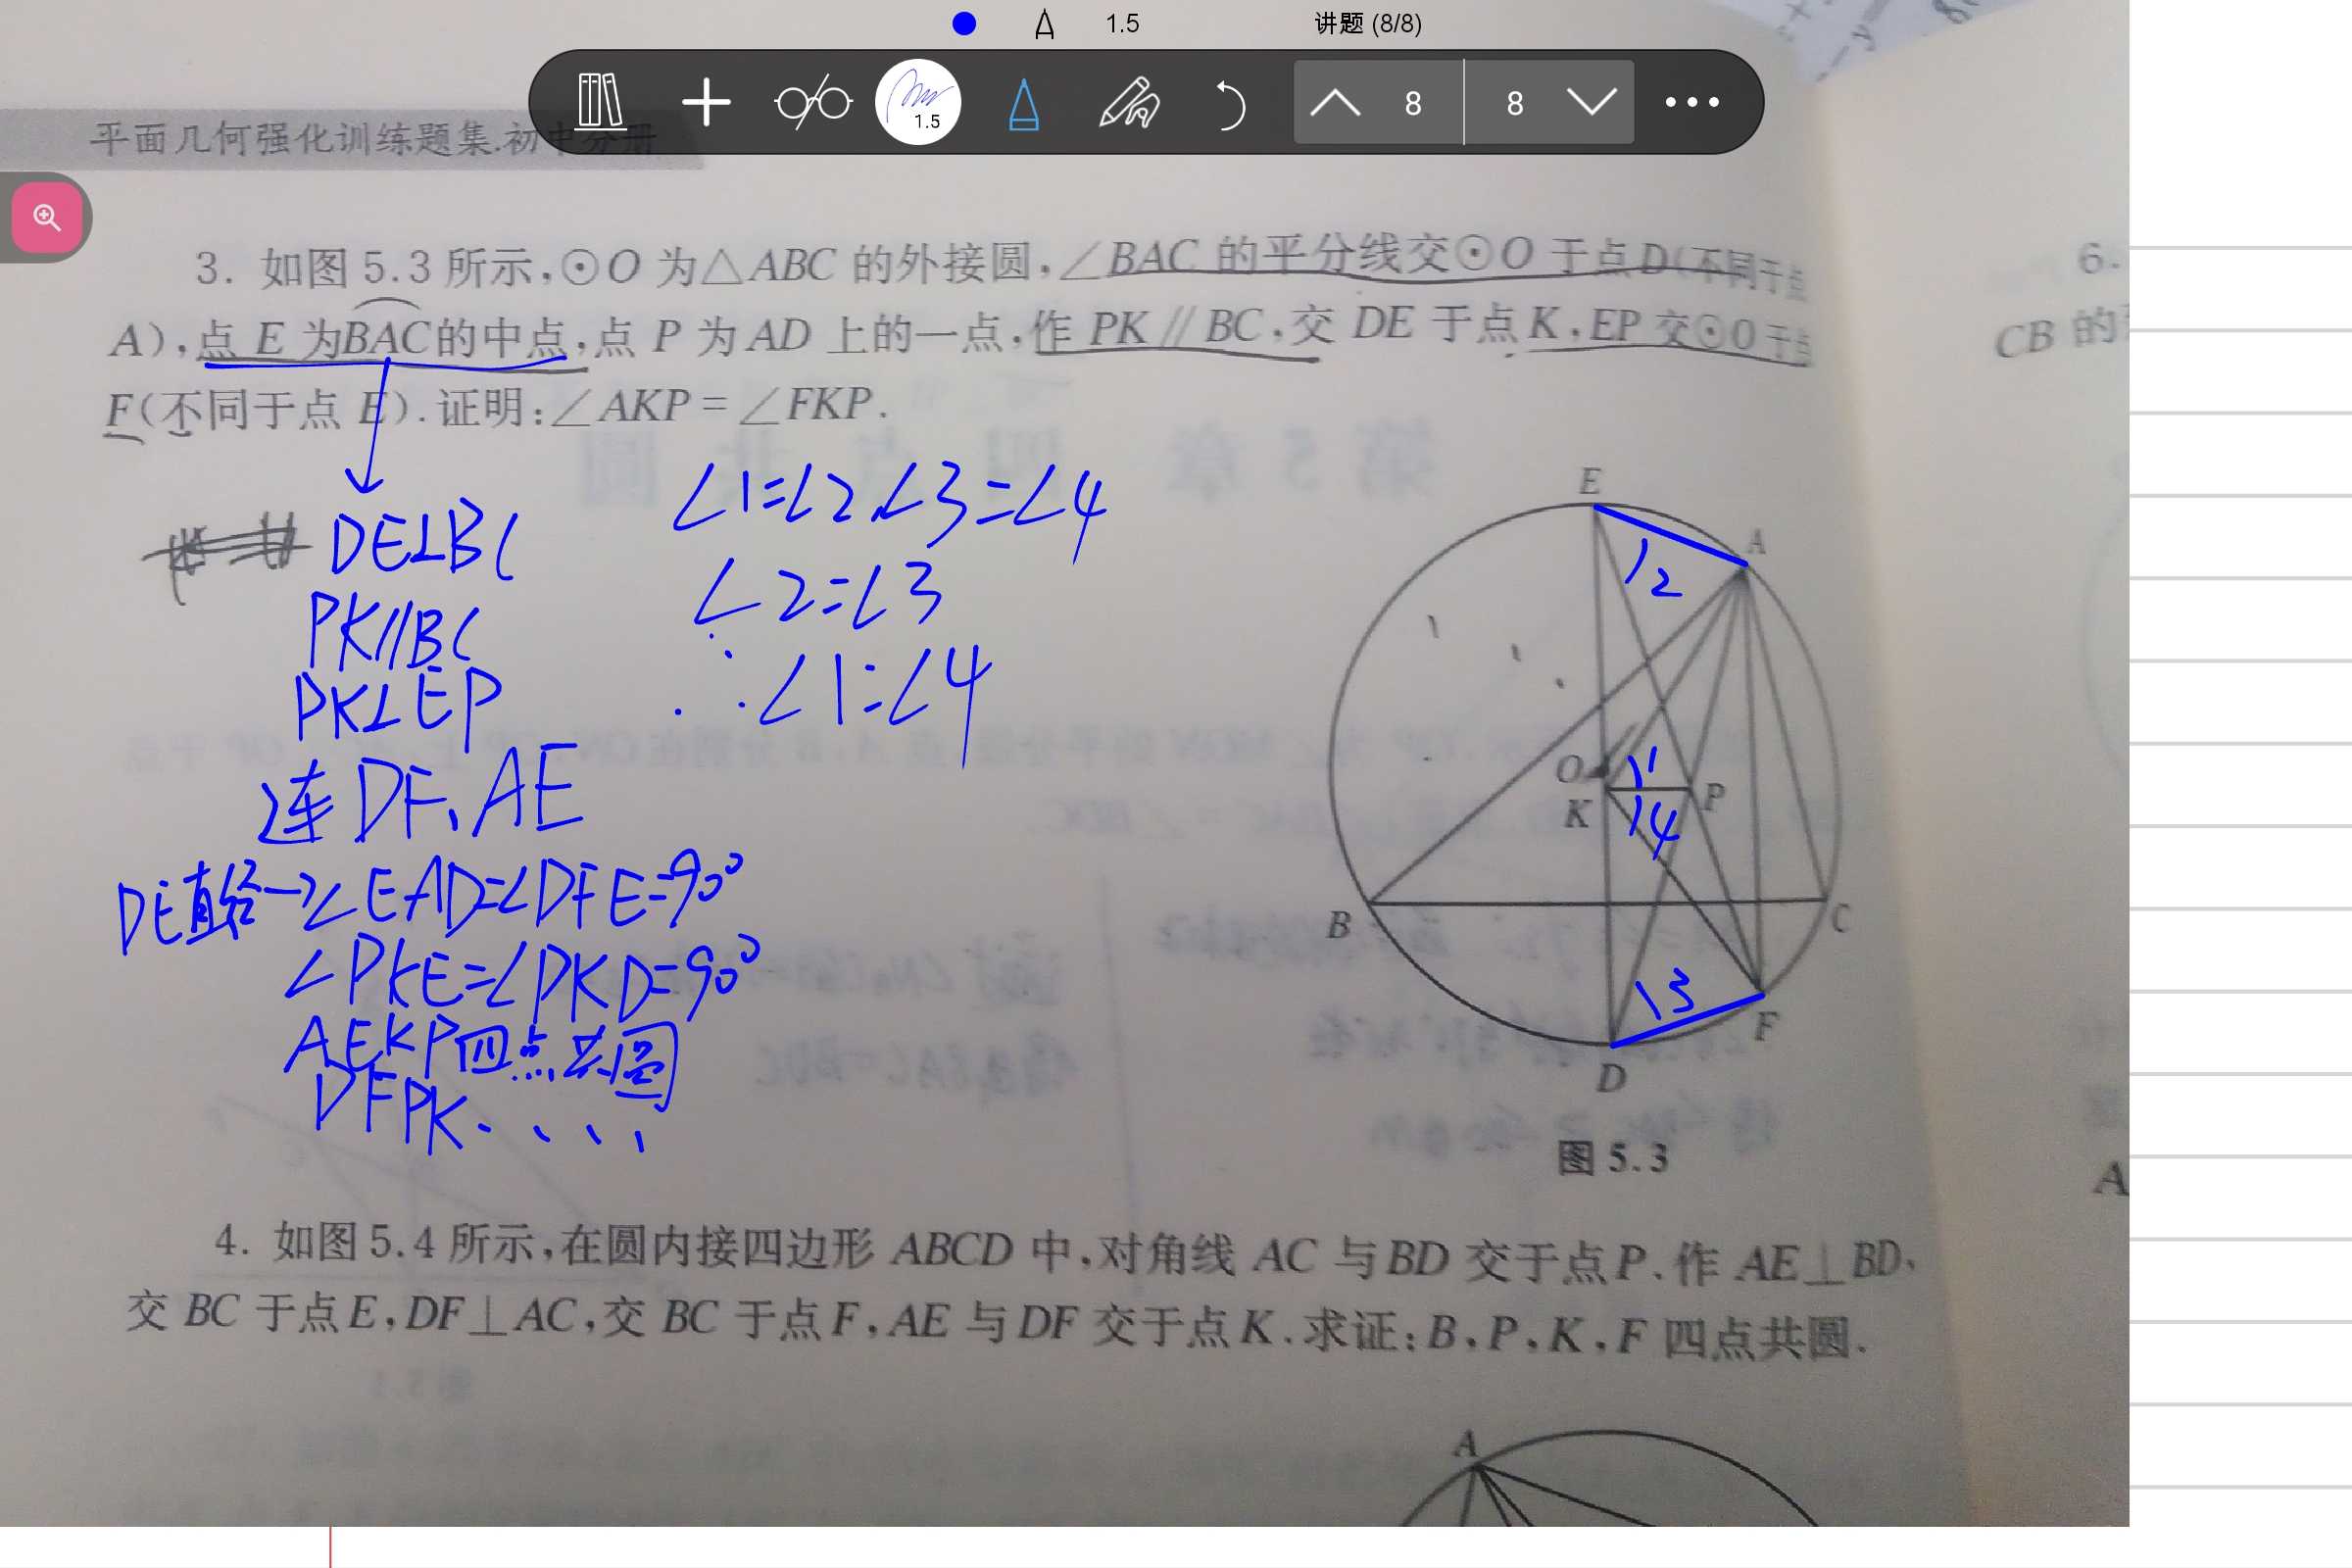 1.5 讲题 (8/8)
1.5 8 8
平面几何强化训练题集.初中分册
3. 如图 5.3 所示,⊙O 为△ABC 的外接圆,∠BAC 的平分线交⊙O 于点 D(不同于点
A),点 E 为BAC的中点,点 P 为 AD 上的一点,作 PK∥BC,交 DE 于点 K,EP 交⊙O 于点
F(不同于点 E).证明:∠AKP=∠FKP.
DE⊥BC
PK∥BC
PK⊥EP
连 DF、AE
DE直径→∠EAD=∠DFE=90°
∠PKE=∠PKD=90°
AEKP四点共圆
DFPK....
∠1=∠2,∠3=∠4
∠2=∠3
∴∠1=∠4
E
A
1 2
O
1
K
P
14
B
C
13
F
D
图 5.3
4. 如图 5.4 所示,在圆内接四边形 ABCD 中,对角线 AC 与BD 交于点 P.作 AE⊥BD,
交 BC 于点 E,DF⊥AC,交 BC 于点 F,AE 与 DF 交于点 K.求证:B,P,K,F 四点共圆.
A
6.
CB 的
A